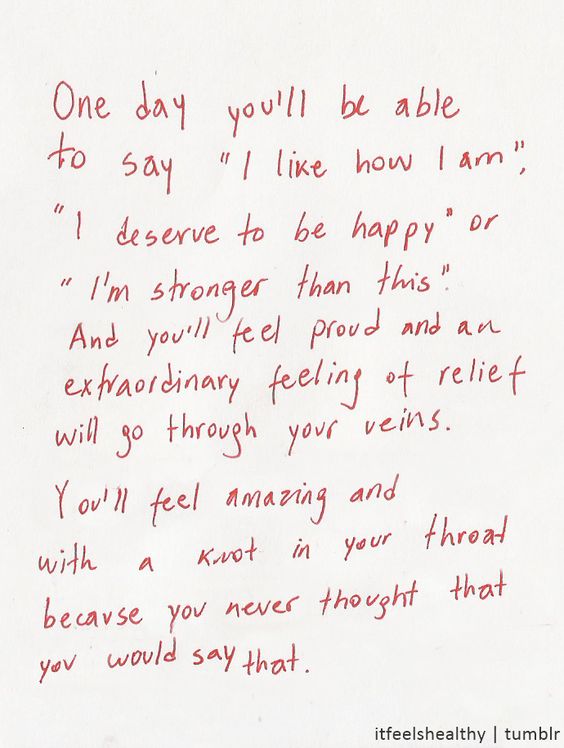 One day you'll be able
to say "I like how I am",
"I deserve to be happy" or
"I'm stronger than this".
And you'll feel proud and an
extraordinary feeling of relief
will go through your veins.
You'll feel amazing and
with a knot in your throat
because you never thought that
you would say that.
itfeelshealthy | tumblr